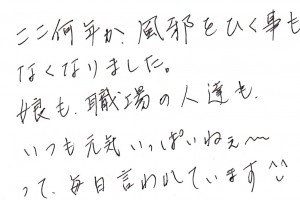 ここ何年か、風邪をひく事も
なくなりました。
娘も、職場の人達も、
いつも元気いっぱいねぇ〜
って、毎日言われています^^